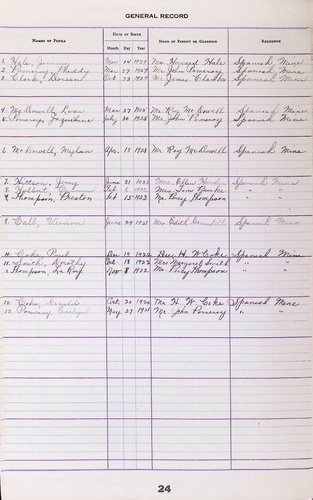 GENERAL RECORD
NAMES OF PUPILS DATE OF BIRTH NAME OF PARENT OR GUARDIAN RESIDENCE
Month Day Year
1. Hale, Jimmy Nov 14 1927 Mr. Howard Hale Spanish Mine
2. Pomeroy, Buddy Nov 27 1927 Mr John Pomeroy Spanish Mine
3. Clark, Doreen Oct 23 1927 Mr James Clark Spanish Mine
4. McDowell, Mar 27 1925 Mr Roy McDowell Spanish Mine
5. Pomeroy, Jaquiline July 30 1925 Mr. John Pomeroy Spanish Mine
6. McDowell, Apr. 18 1923 Mr Roy McDowell Spanish Mine
7. Hutson, Jerry June 21 1923 Mrs. Ellen Spanish Mine
8. Feb 6 Mrs " "
9. Thompson, Preston Feb 15 1923 Mr. Percy Thompson " "
9. Call, Vernon June 29 1921 Mrs. Edith Spanish Mine
10. Coke, Paul Dec 19 1922 H. W. Coke Spanish Mine
11. Smith, Dorothy Oct. 18 1922 Mrs Margaret Smith " "
Thompson, Le Roy Nov 8 1922 Mr. Percy Thompson " "
12. Coke, Gerald Oct 20 1920 Mr H. W. Coke Spanish Mine
13. Pomeroy, May 27 1921 Mr. John Pomeroy " "
24